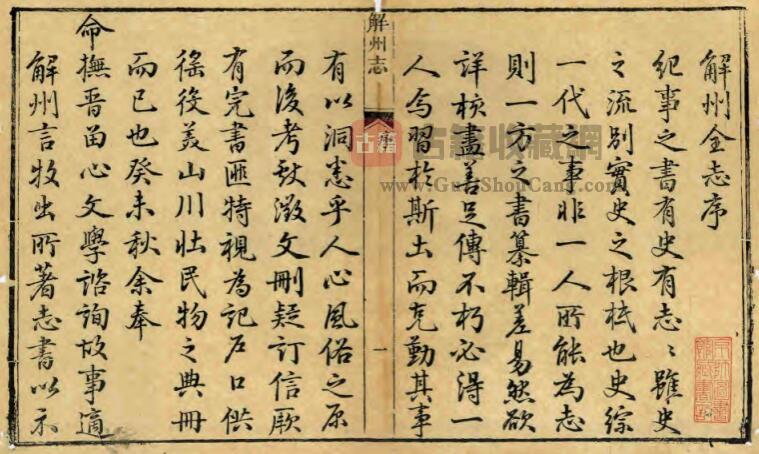 解州全志序
紀事之書有史有志〻雖史
之流別實史之根柢也史綜
一代之事非一人所能為志
則一方之書纂輯差易然欲
詳核盡善足傳不朽必得一
人焉習於斯土而克勤其事
解州志
序
一
有以洞悉乎人心風俗之原
而後考獻徵文刪疑訂信厥
有完書匪特視為記戶口供
徭役美山川壯民物之典冊
而已也癸未秋余奉
命撫晉留心文學諮詢故事適
解州言牧出所著志書以示
古籍
古籍收藏網
www.GuJiShouCang.com